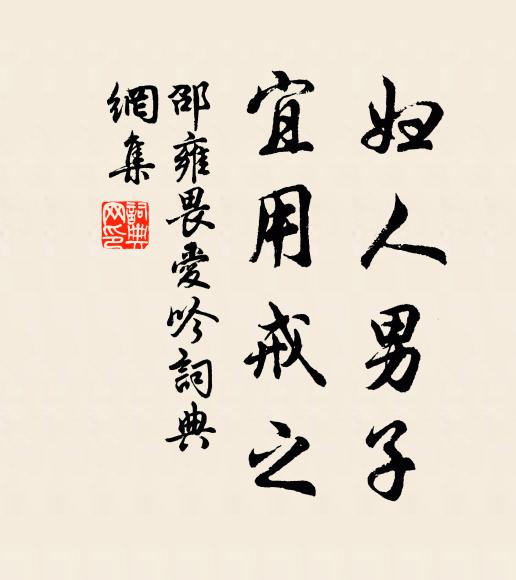 妇人男子
宜用戒之
邵雍畏爱吟詞典
網集
詞典
网印